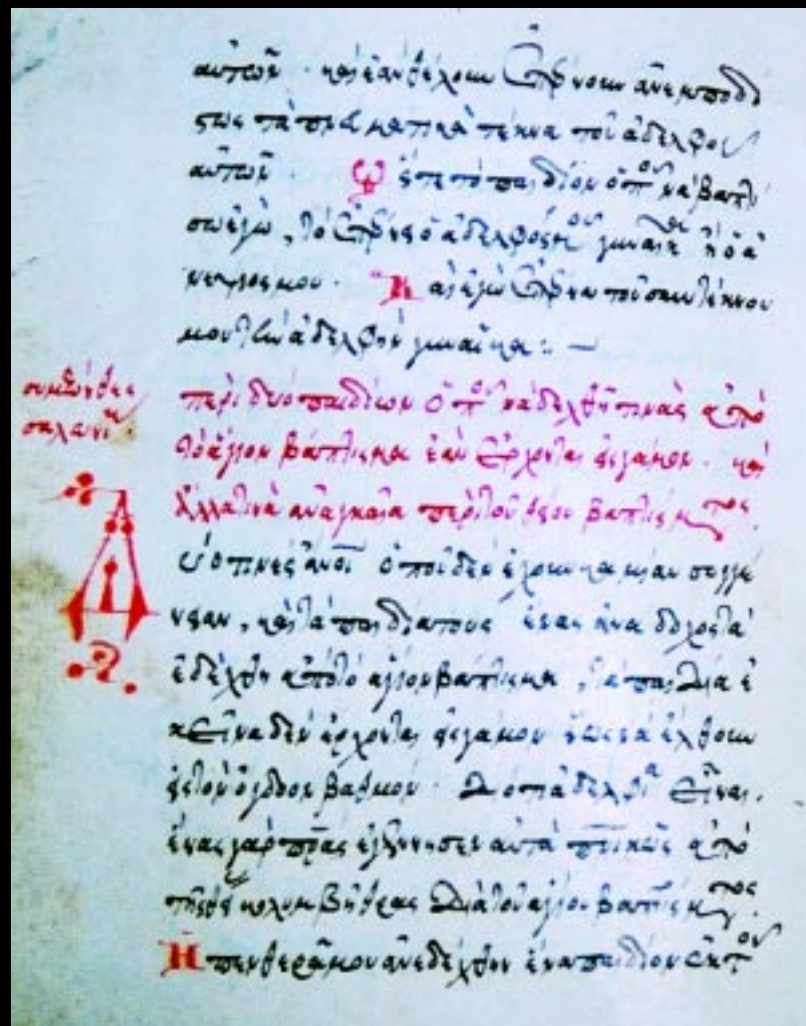 αὐτῶν · καὶ ἐὰν θέλουν παίρνουν ἀνεμποδί
στως τὰ πνευματικὰ τέκνα τοῦ ἀδελφοῦ
αὐτῶν · τὸ παιδίον ὁποῦ νὰ βαπτί
σω ἐγώ, τὸ παίρνει ὁ ἀδελφὸς γυναῖκα ἢ ὁ ἀ
νεψιός μου · Καὶ ἐγὼ παίρνω τοῦ συντέκνου
μου τὴν ἀδελφὴν γυναῖκα : –
περὶ δύο παιδίων ὁποῦ νὰ δεχθῇ τινὰς ἀπὸ
τὸ ἅγιον βάπτισμα ἐὰν ἔρχονται εἰς γάμον · καὶ
ἄλλα τινὰ ἀναγκαῖα περὶ τοῦ θείου βαπτίσματος.
Δ
ύο τινὲς ἄνοι ὁποῦ δὲν ἔχουν καμίαν συγγέ
νειαν, καὶ τὰ παιδία τους ἕνας ἀνάδοχος τὰ
ἐδέχθη ἀπὸ τὸ ἅγιον βάπτισμα, τὰ παιδία ἐ
κεῖνα δὲν ἔρχονται εἰς γάμον ἕως νὰ ἔλθουν
εἰς τὸν ὄγδοον βαθμόν · Διότι ἀδελφία εἶναι.
ἕνας γὰρ πρας ἐγέννησεν αὐτὰ πνικῶς ἀπὸ
τῆς θείας κολυμβήθρας διὰ τοῦ ἁγίου βαπτίσματος.
Η πενθερά μου ἀνεδέχθην ἕνα παιδίον ἐκ τοῦ